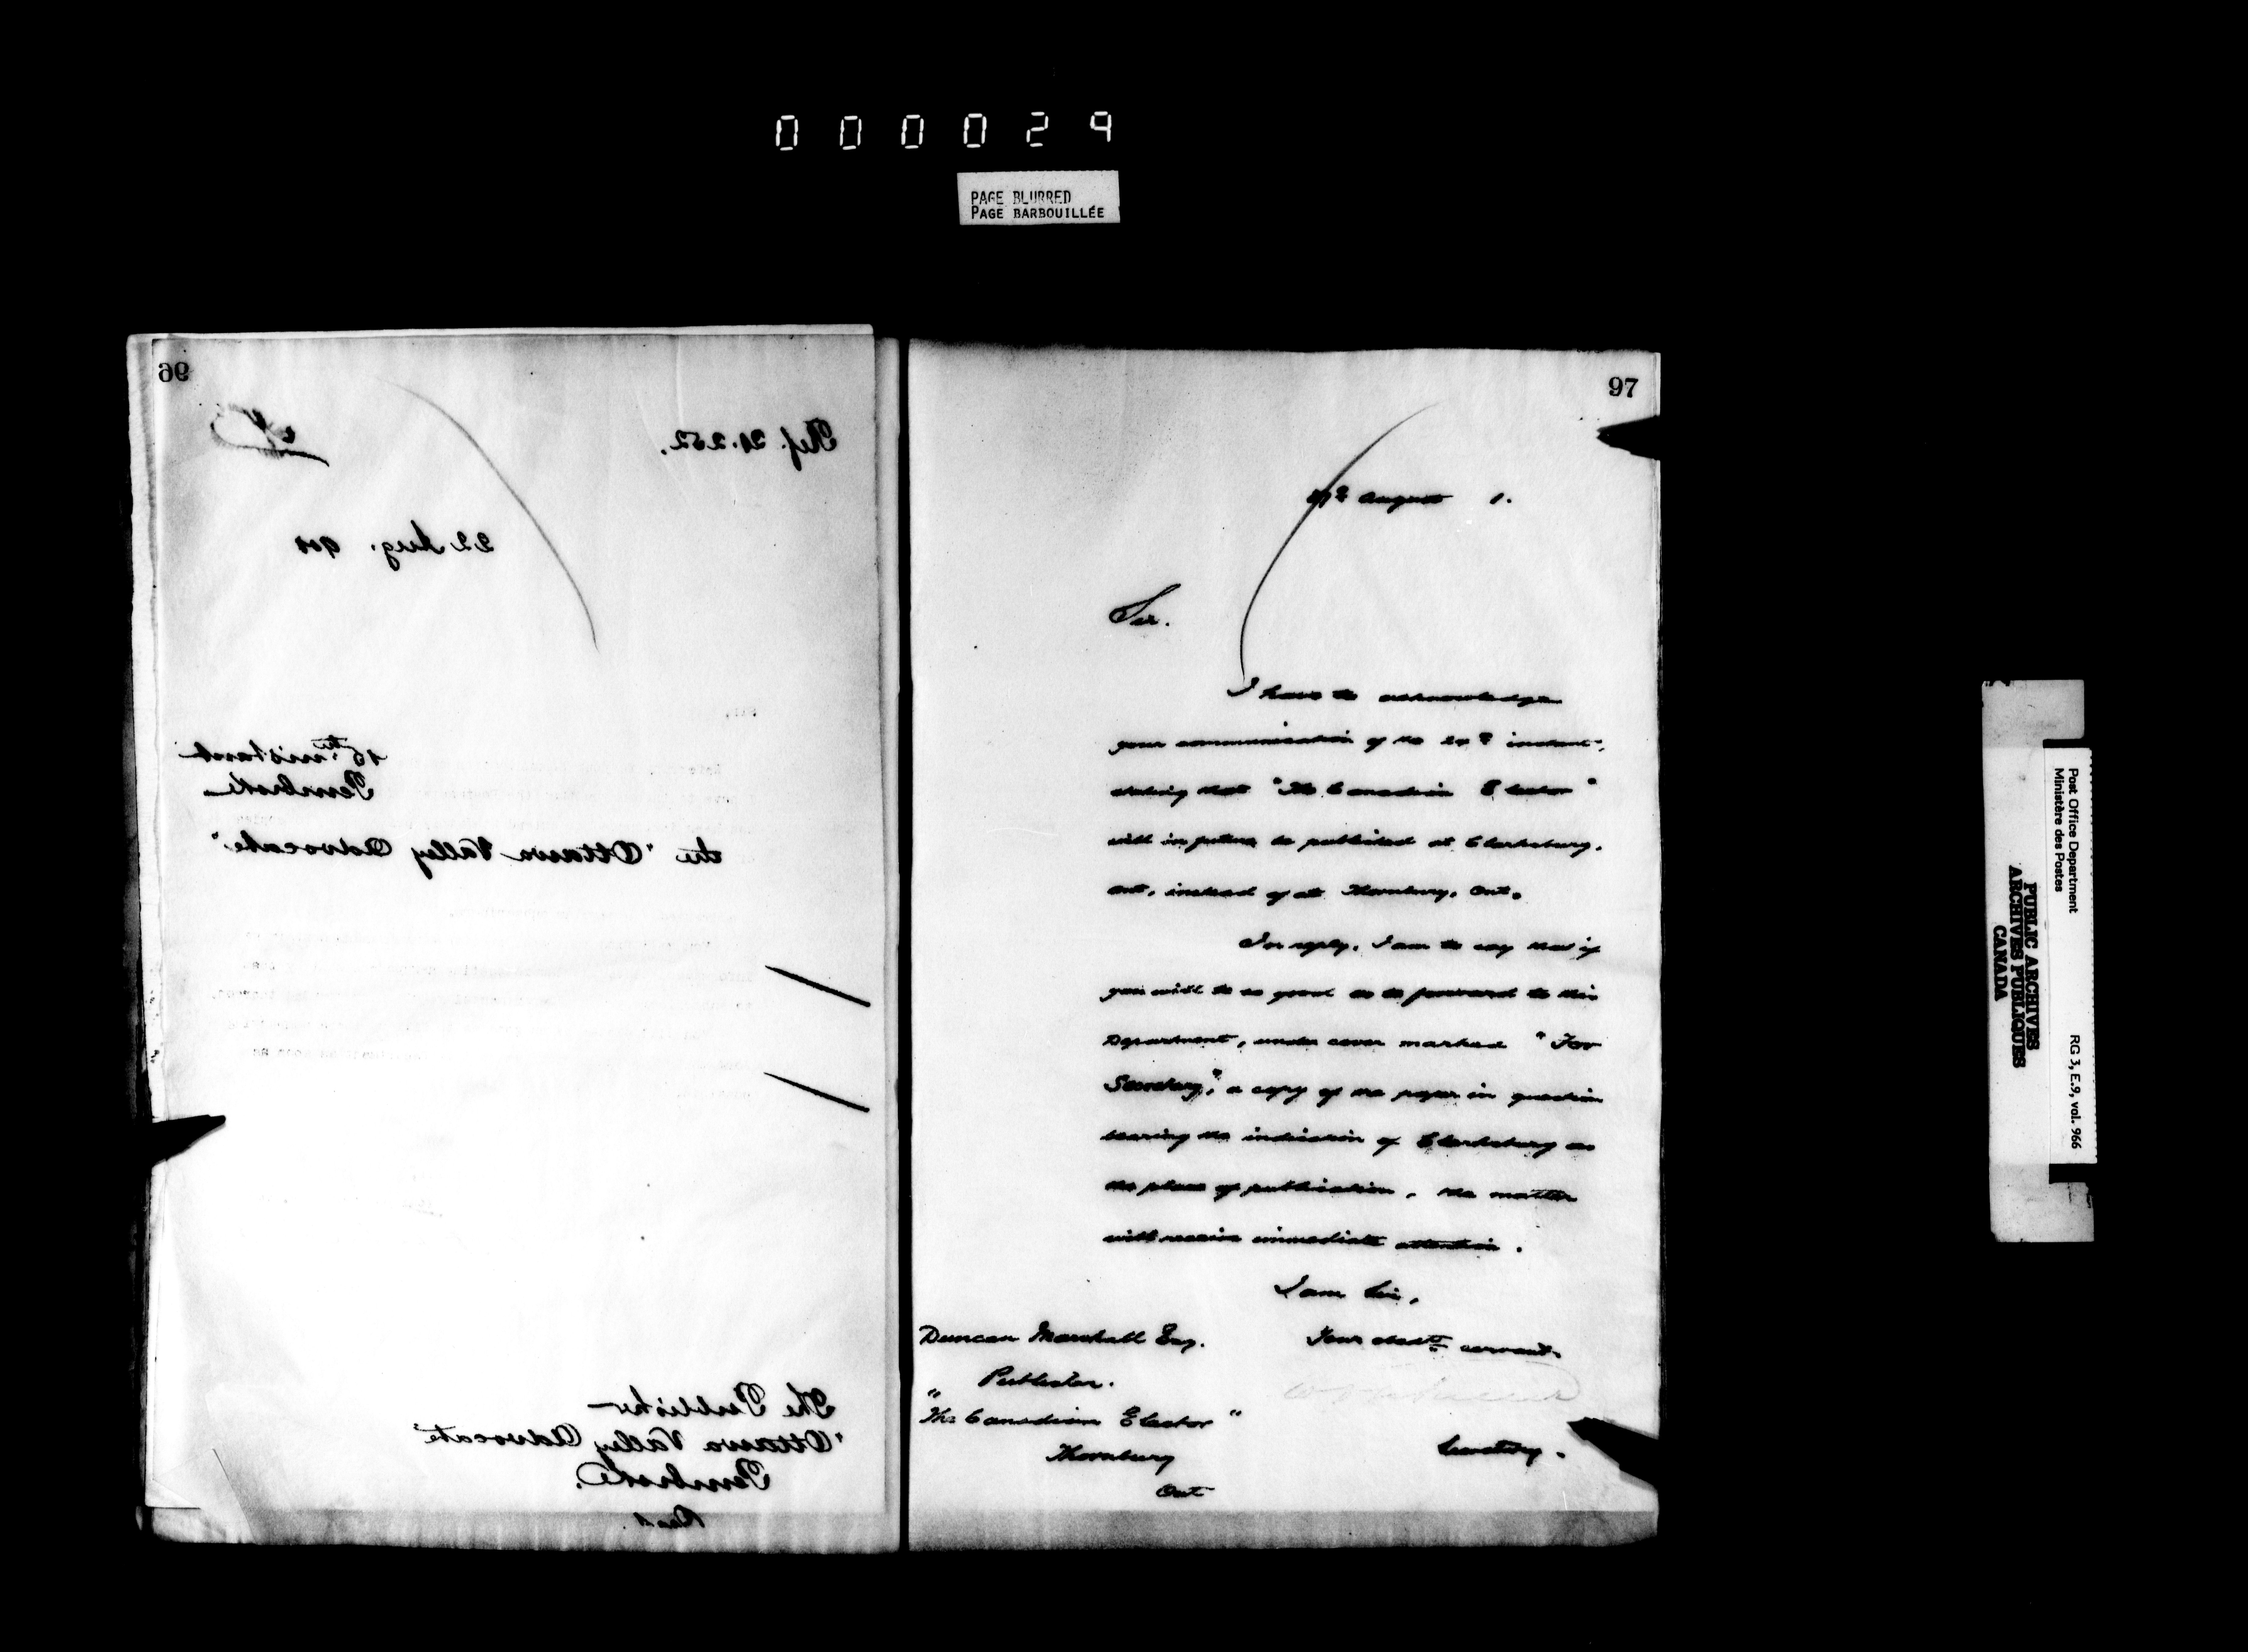 000029
PAGE BLURRED
PAGE BARBOUILLÉE
96
Ref. 21.252.
22 Aug. 901
15th instant
Pembroke
the "Ottawa Valley Advocate"
The Publisher
"Ottawa Valley Advocate"
Pembroke.
97
August 1.
Sir.
I have to acknowledge
your communication of the instant,
stating that "The Canadian Elector"
will in future be published at Clarksburg,
Ont, instead of at Thornbury, Ont.
In reply, I am to say that if
you will be so good as to forward to this
Department, under cover marked "For
Secretary", a copy of the paper in question
bearing the indication of Clarksburg as
the place of publication, the matter
will receive immediate attention.
I am Sir,
Your obedt servant,
Secretary.
Duncan Marshall Esq.
Publisher.
"The Canadian Elector"
Thornbury
Ont
Post Office Department
Ministère des Postes
RG 3, E.9, vol. 966
PUBLIC ARCHIVES
ARCHIVES PUBLIQUES
CANADA